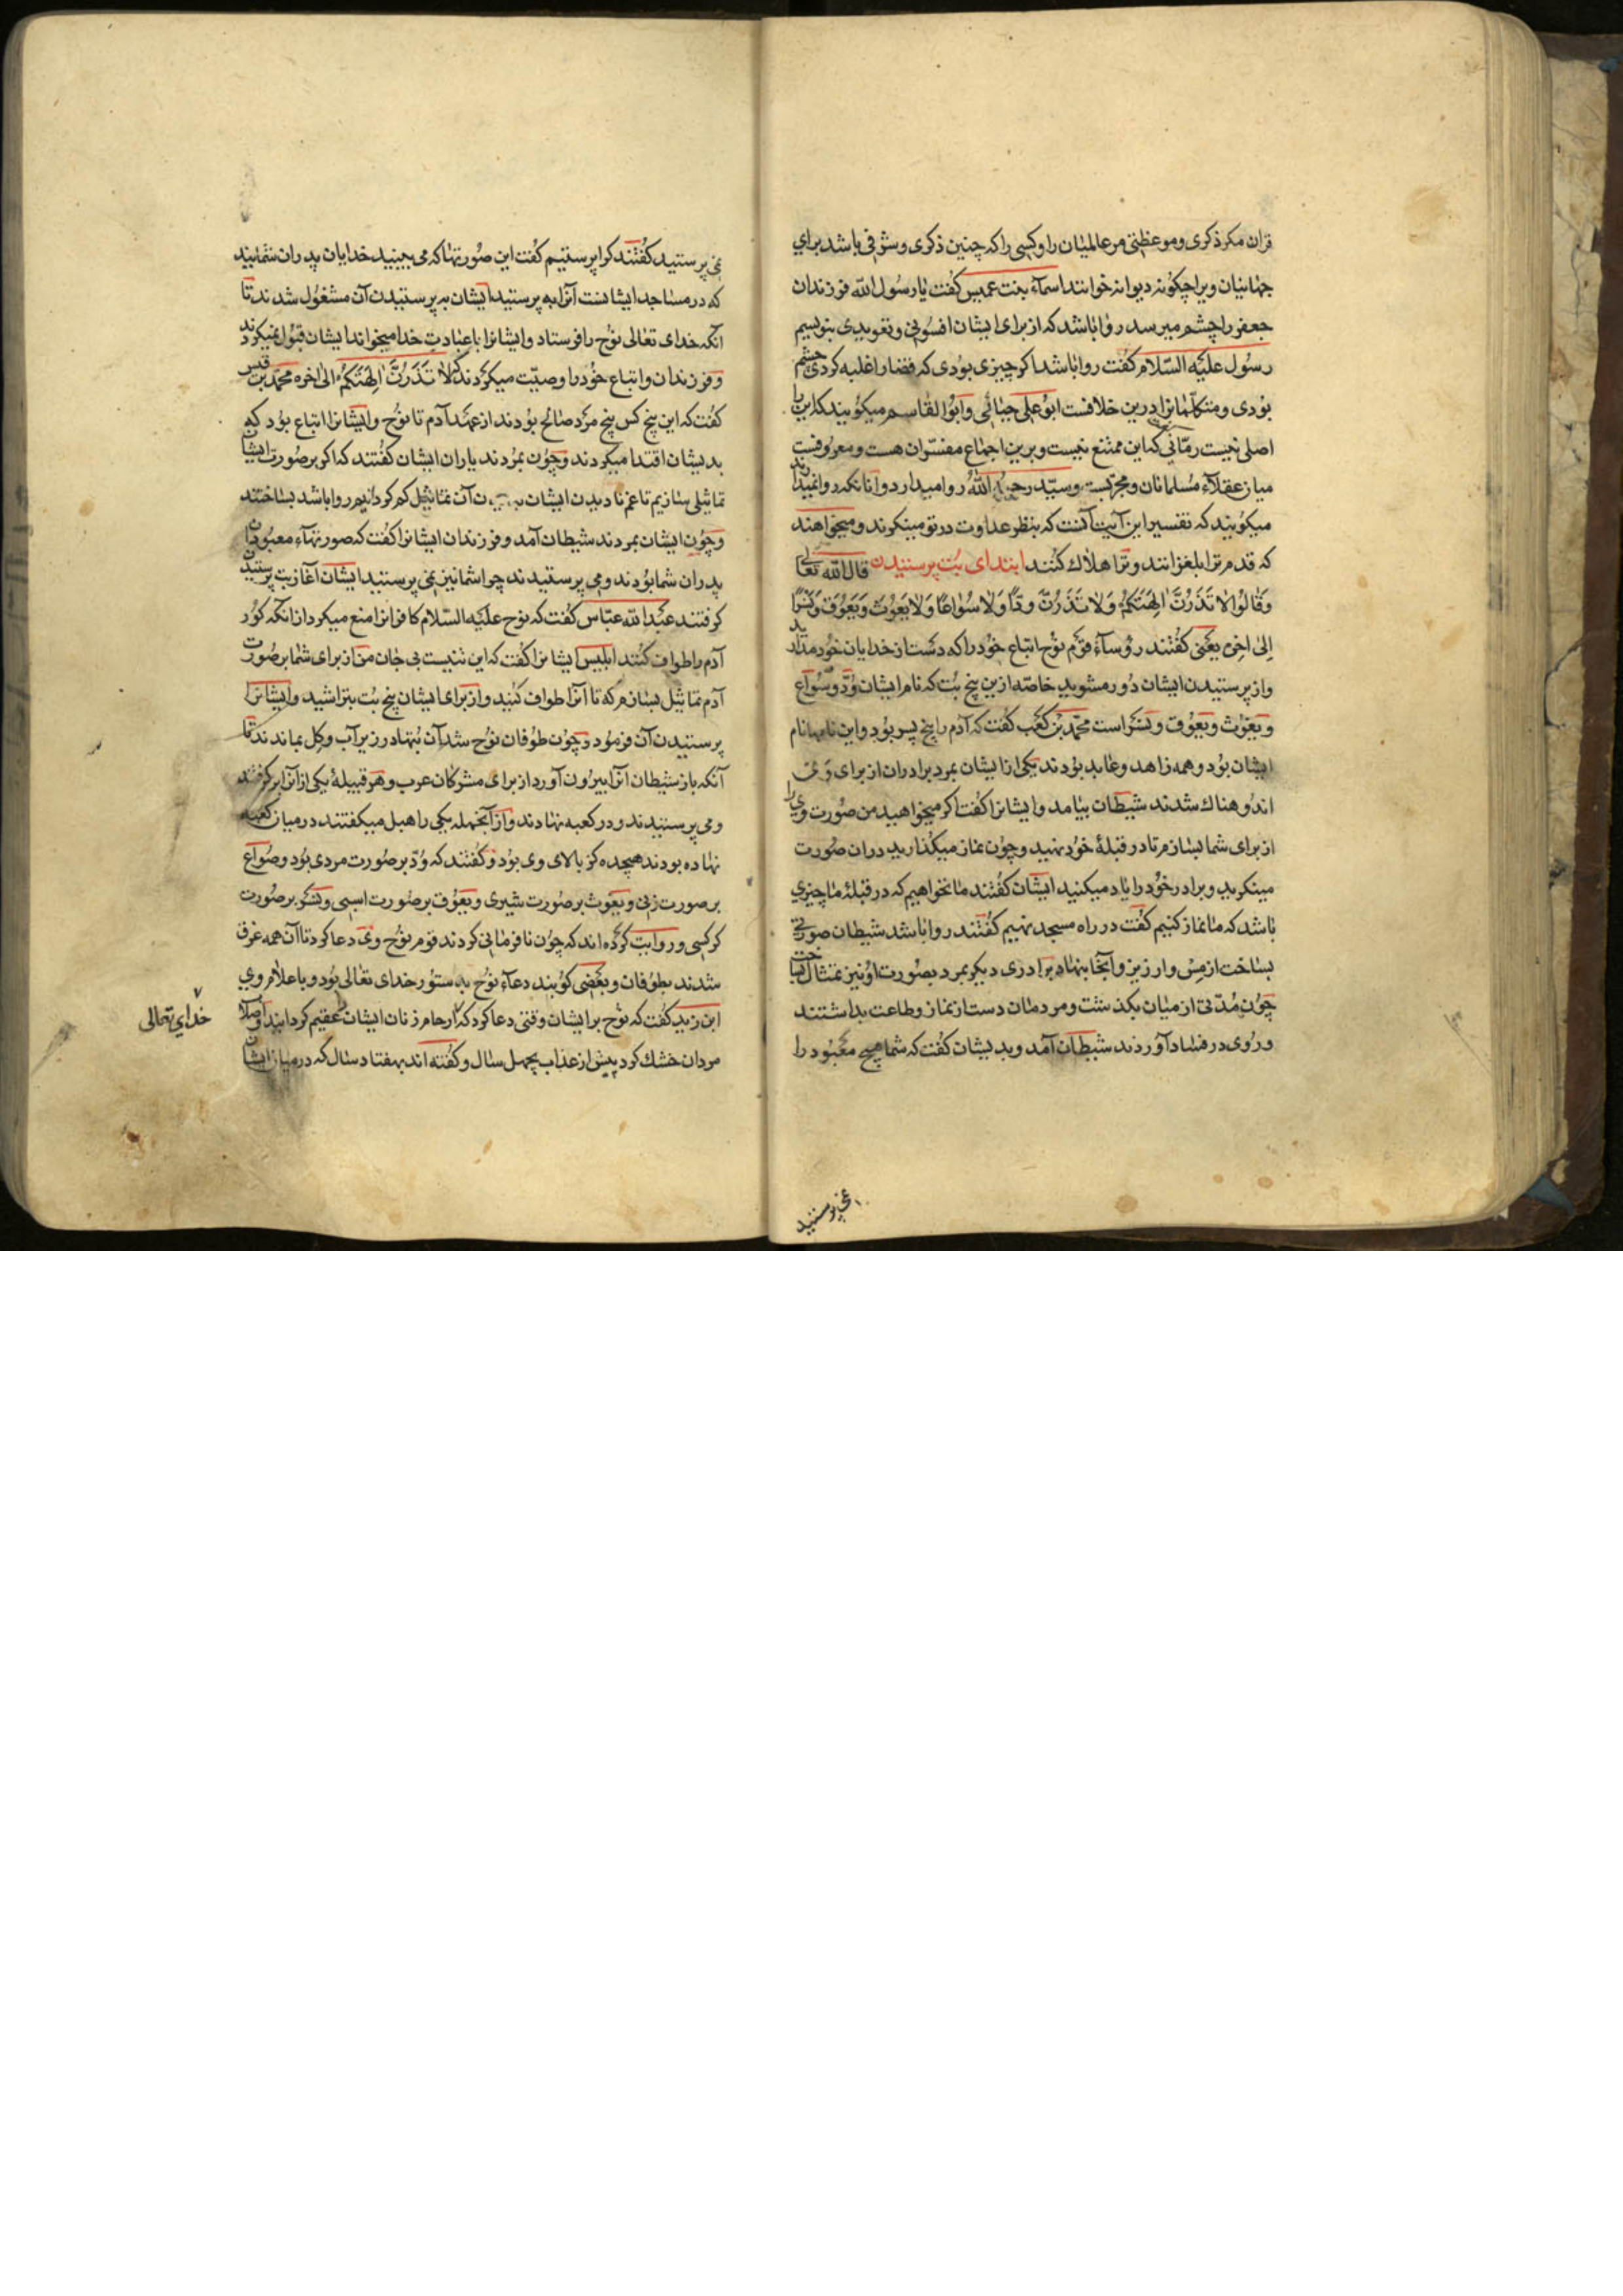 قران مکر ذکری و موعظتی مر عالمیان را و کسی را که چنین ذکری و شرفی باشد برای
جهانیان ویرا چکونه دیوانه خوانند اسمآء بنت عمیس کفت یا رسول الله فرزندان
جعفر را چشم میرسد روا باشد که از برای ایشان افسونی و تعویدی بنویسیم
رسول علیه السّلام کفت روا باشد اکر چیزی بودی که قضا را غلبه کردی چشم
بودی و متکلّمانرا درین خلافست ابو علی جبائی و ابو القاسم میکویند که این را
اصلی نیست رمّانی که این ممتنع نیست و برین اجماع مفسّران هست و معروفست
میان عقلآء مسلمانان و مجرّبست و سیّد رحمه الله روا میدارد و آنانکه روا نمیدارند
میکویند که تفسیر این آیت آنست که بنظر عداوت در تو مینکرند و میخواهند
که قدم ترا بلغزانند و ترا هلاک کنند ابتدای بت پرستیدن قال الله تعالی
وَقَالُوا لَا تَذَرُنَّ اٰلِهَتَكُمْ وَلَا تَذَرُنَّ وَدًّا وَلَا سُوَاعًا وَلَا يَغُوثَ وَيَعُوقَ وَنَسْرًا
الی اخره یعنی کفتند رؤسآء قوم نوح اتباع خود را که دست از خدایان خود مدارید
و از پرستیدن ایشان دور مشوید خاصّه ازین پنج بت که نام ایشان ودّ و سواع
و یغوث و یعوق و نسر است محمّد بن کعب کفت که آدم را پنج پسر بود و این نامها نام
ایشان بود و همه زاهد و عابد بودند یکی از ایشان بمرد برادران از برای وی
اندوهناک شدند شیطان بیامد و ایشانرا کفت اکر میخواهید من صورت وی را
از برای شما بسازم تا در قبلهٔ خود نهید و چون نماز میکذارید دران صورت
مینکرید و برادر خود را یاد میکنید ایشان کفتند ما نخواهیم که در قبلهٔ ما چیزی
باشد که ما نماز کنیم کفت در راه مسجد نهیم کفتند روا باشد شیطان صورتی
بساخت از مس و ارزیز و آنجا بنهاد برادری دیکر بمرد بصورت او نیز تمثال بساخت
چون مدّتی از میان بکذشت و مردمان دست از نماز و طاعت بداشتند
و روی در فساد آوردند شیطان آمد و بدیشان کفت که شما هیچ معبود را
نمی پرستید
نمی پرستید کفتند کرا پرستیم کفت این صورتها که می بینید خدایان پدران شمایند
که در مساجد ایشانست آنرا به پرستید ایشان به پرستیدن آن مشغول شدند تا
آنکه خدای تعالی نوح را فرستاد و ایشانرا با عبادت خدا میخواند ایشان قبول نمیکردند
و فرزندان و اتباع خود را وصیّت میکردند که لَا تَذَرُنَّ اٰلِهَتَكُمْ الی اخره محمّد بن قیس
کفت که این پنج کس پنج مرد صالح بودند از عهد آدم تا نوح و ایشانرا اتباع بود که
بدیشان اقتدا میکردند و چون بمردند یاران ایشان کفتند که اکر بر صورت ایشان
تماثیلی سازیم تا غم نادیدن ایشان بدیدن آن تماثیل کم کردانیم روا باشد بساختند
و چون ایشان بمردند شیطان آمد و فرزندان ایشانرا کفت که صورتهآء معبودان
پدران شما بودند و می پرستیدند چرا شما نیز نمی پرستید ایشان آغاز بت پرستیدن
کرفتند عبد الله عبّاس کفت که نوح علیه السّلام کافرانرا منع میکرد از انکه کور
آدم را طواف کنند ابلیس ایشانرا کفت که این تنیست بی جان من از برای شما بر صورت
آدم تماثیل بسازم که تا آنرا طواف کنید و از برای ایشان پنج بت بتراشید و ایشانرا
پرستیدن آن فرمود و چون طوفان نوح شد آن بتها در زیر آب و کل بماندند تا
آنکه باز شیطان آنرا بیرون آورد از برای مشرکان عرب و هر قبیلهٔ یکی از آنرا برکرفتند
و می پرستیدند و در کعبه نهادند و از آنجمله یکی را هبل میکفتند در میان کعبه
نهاده بودند هیجده کز بالای وی بود و کفتند که ودّ بر صورت مردی بود و صواع
بر صورت زنی و یغوث بر صورت شیری و یعوق بر صورت اسبی و نسر بر صورت
کرکسی و روایت کرده اند که چون نافرمانی کردند قوم نوح وی دعا کرد تا آن همه غرق
شدند بطوفان و بعضی کویند دعآء نوح بدستور خدای تعالی بود و باعلام وی
ابن زید کفت که نوح بر ایشان وقتی دعا کرد که ارحام زنان ایشان عقیم کردانید و اصلاب
خدای تعالی
مردان خشک کرد پیش از عذاب بچهل سال و کفته اند بهفتاد سال که در میان ایشان